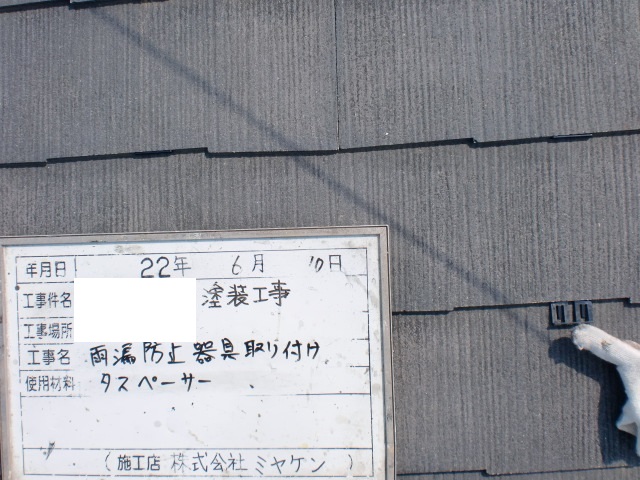 年月日 22年 6月 10日
工事件名 塗装工事
工事場所
工事名 雨漏防止器具取り付け
使用材料 タスペーサー
(施工店 株式会社ミヤケン )